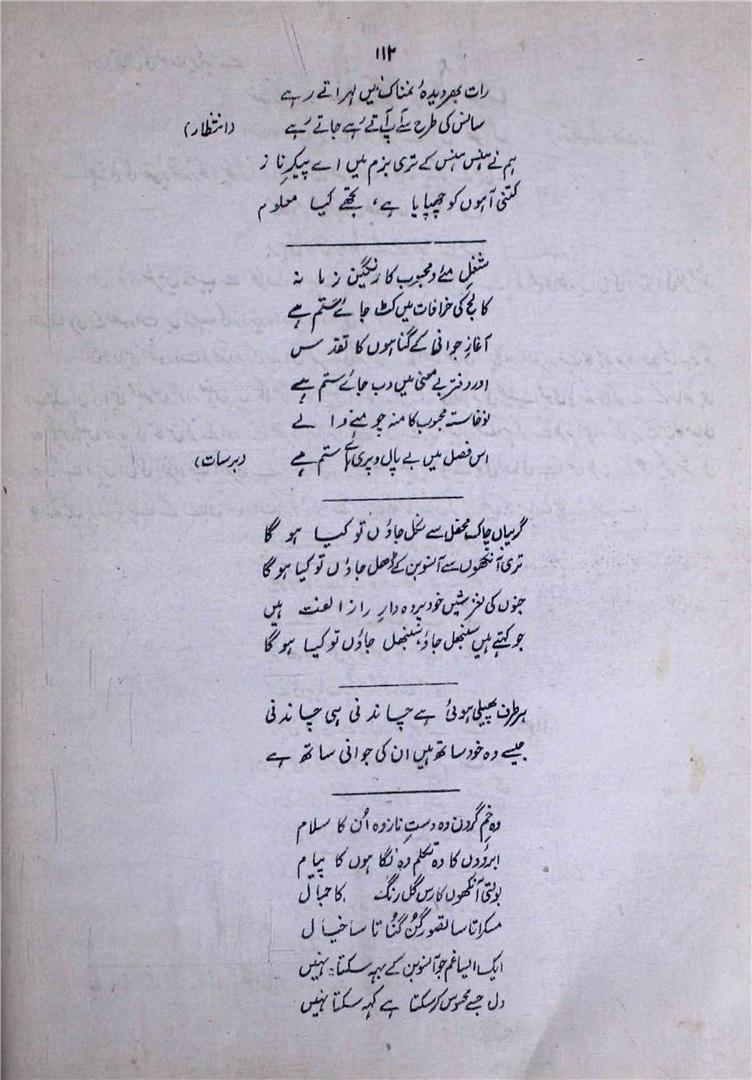 ۱۱۲
رات بھر دیدۂ نمناک میں لہراتے رہے
سانس کی طرح سے آپ آتے رہے جاتے رہے (انتظار)
ہم نے ہنس ہنس کے تری بزم میں اے پیکرِ ناز
کتنی آہوں کو چھپایا ہے، تجھے کیا معلوم
شغلِ مئے و محبوب کا رنگین زمانہ
کالج کی خرافات میں کٹ جائے ستم ہے
آغازِ جوانی کے گناہوں کا تقدس
اور دفترِ بے معنیٰ میں دب جائے ستم ہے
نوخاستہ محبوب کا منہ چومنے والے
اس فصل میں بے بال و پری ہائے ستم ہے (برسات)
گریباں چاک محفل سے نکل جاؤں تو کیا ہوگا
تری آنکھوں سے آنسو بن کے ڈھل جاؤں تو کیا ہوگا
جنوں کی لغزشیں خود پردہ دارِ رازِ الفت ہیں
جو کہتے ہیں سنبھل جاؤ، سنبھل جاؤں تو کیا ہوگا
ہر طرف پھیلی ہوئی ہے چاندنی ہی چاندنی
جیسے وہ خود ساتھ ہیں ان کی جوانی ساتھ ہے
وہ خمِ گردن وہ دستِ ناز وہ اُن کا سلام
ابروؤں کا وہ تکلم وہ نگاہوں کا پیام
بولتی آنکھوں کا رس گل رنگ کا جمال
مسکراتا سا تصور گنگناتا سا خیال
ایک ایسا غم جو آنسو بن کے بہہ سکتا نہیں
دل جسے محسوس کر سکتا ہے کہہ سکتا نہیں